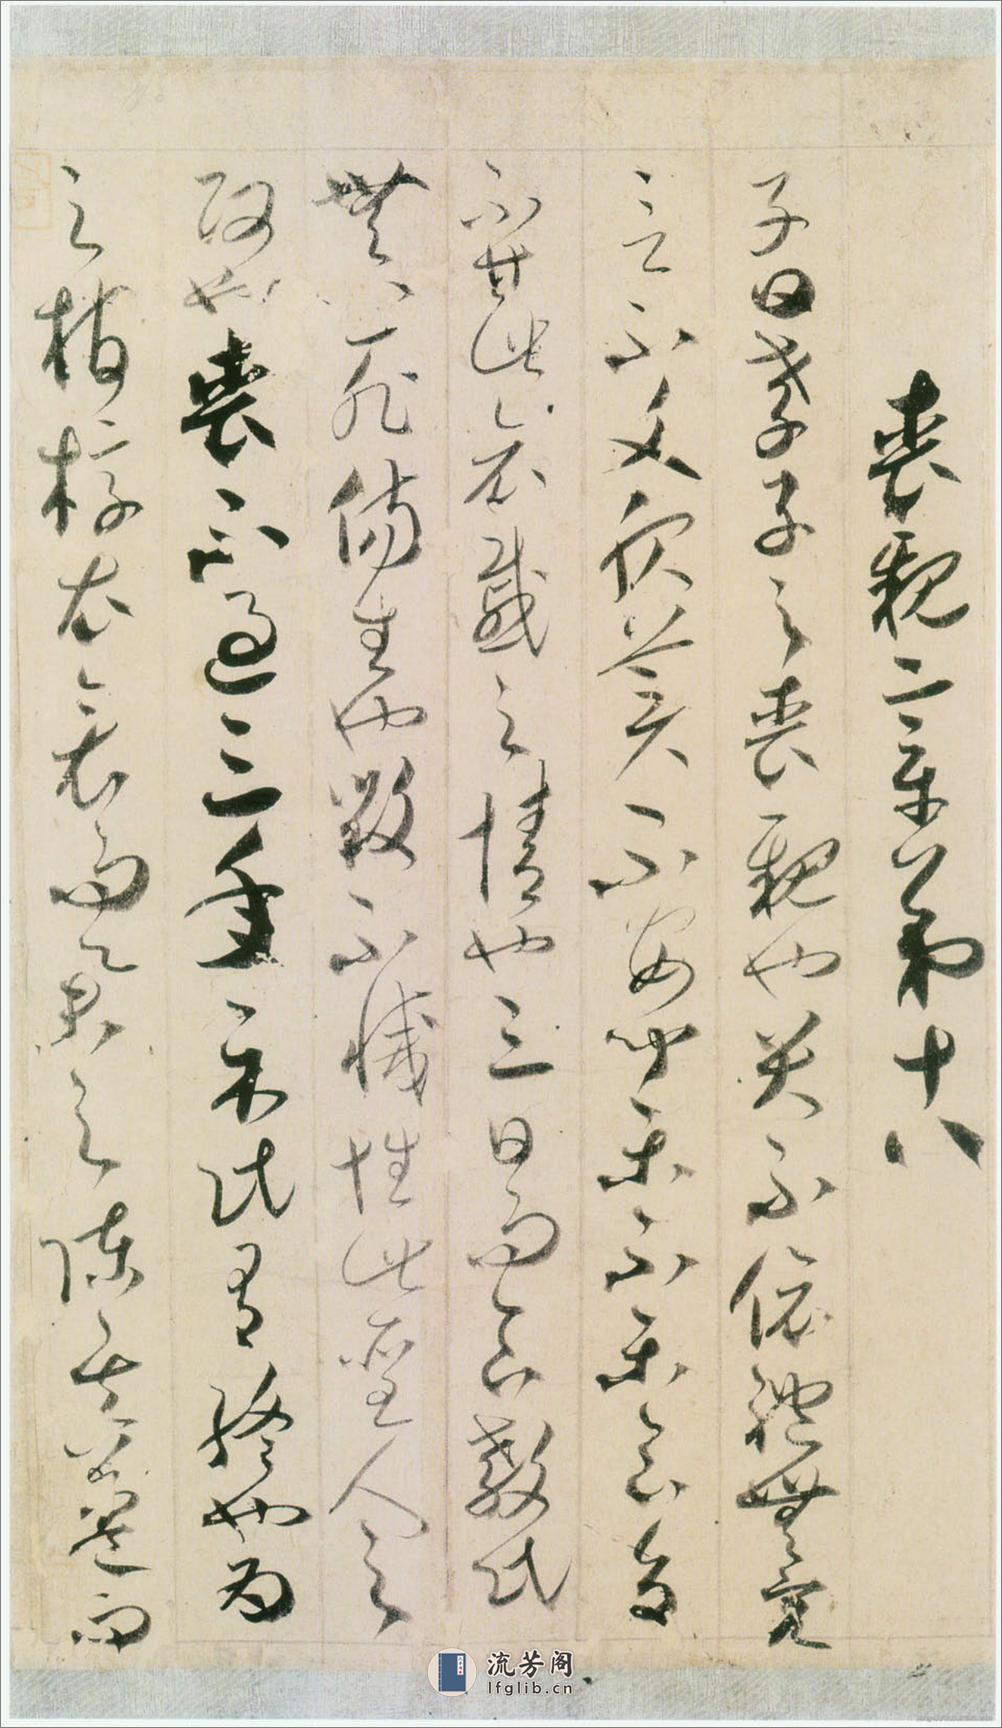 喪親章第十八
子曰孝子之喪親也哭不偯禮無容
言不文服美不安聞樂不樂食旨
不甘此哀慼之情也三日而食教民
無以死傷生也毀不滅性此聖人之
政也喪不過三年示民有終也為
之棺椁衣衾而舉之陳其簠簋而
流芳阁
lfglib.cn